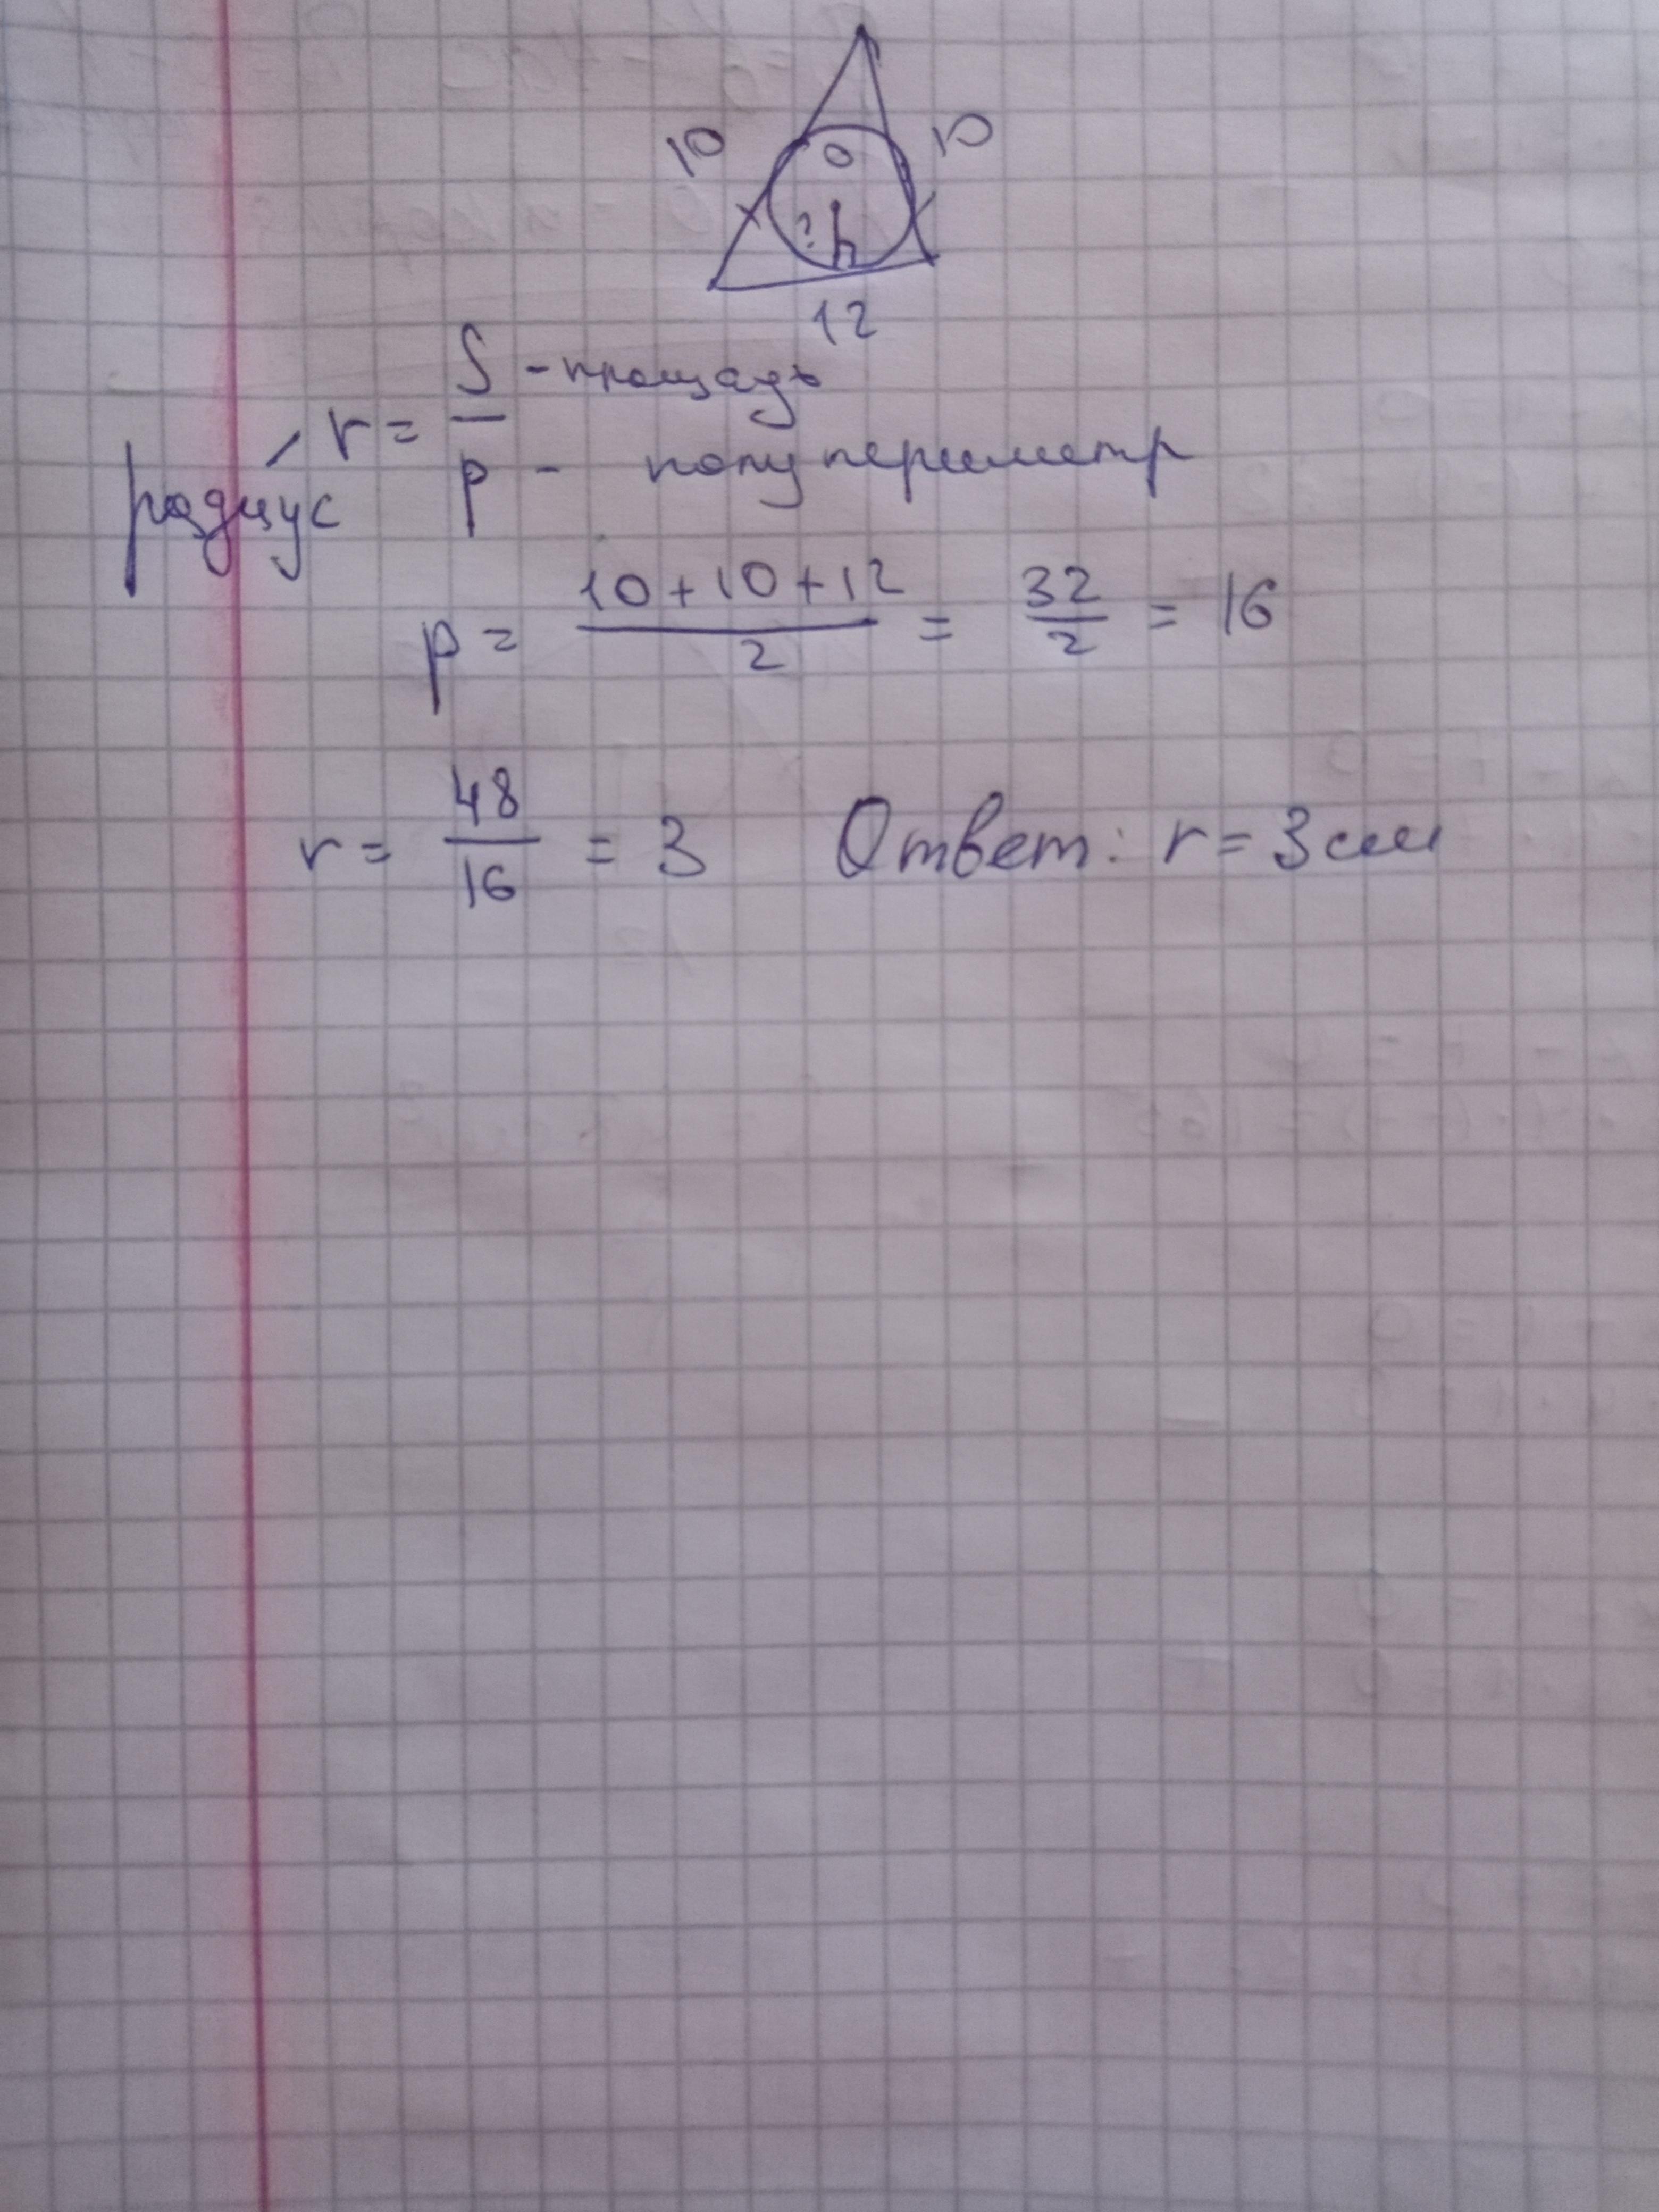 10 10
O
?
12
r = S - площадь
радиус p - полупериметр
p = 10 + 10 + 12 / 2 = 32 / 2 = 16
r = 48 / 16 = 3 Ответ: r = 3 см